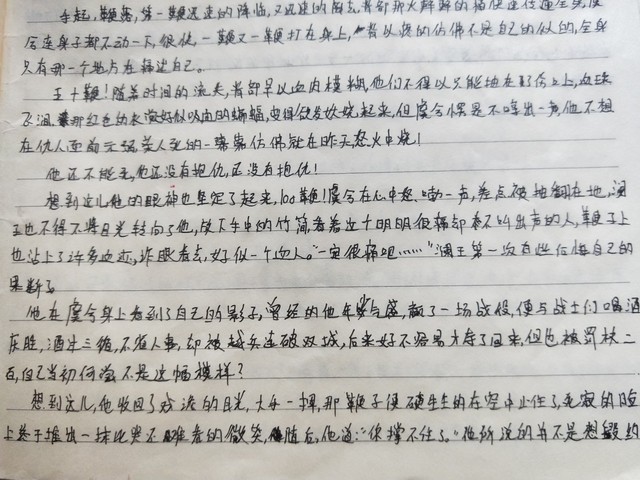 手起,鞭落,第一鞭迅速的降临,又迅速的离去,背部那火辣辣的痛便迅速传遍全身,虞
令连身子都不动一下,很快,一鞭又一鞭打在身上,背以疼的仿佛不是自己的似的,全身
只有那一个地方在释述自己。
五十鞭!随着时间的流失,背部早以血肉模糊,他们不得以只能抽在那伤口上,血珠
飞溅,那红色的衣裳好似吸血的蝙蝠,变得愈发妖娆起来,但虞令愣是不哼出一声,他不想
在仇人面前示弱,美人死的一幕幕仿佛就在昨天,怒火中烧!
他还不能死,他还没有抱仇,还没有抱仇!
想到这儿他的眼神也坚定了起来,100鞭!虞令在心中怒一声,差点被抽翻在地,澜
王也不得不将目光转向了他,放下手中的竹简看着这十明明很痛却不叫出声的人,鞭子上
也沾上了许多血迹,乍眼看去,好似一个血人。"一定很痛吧……"澜王第一次有些后悔自己的
果断了。
他在虞令身上看到了自己的影子,曾经的他年少气盛,赢了一场战役,便与战士们喝酒
庆胜,酒过三巡,不省人事,却被越兵连破双城,后来好不容易才夺了回来,但也被罚杖二
百,自己当初何尝不是这幅模样?
想到这儿,他收回了的目光,大手一挥,那鞭子便硬生生的在空中止住了,的脸
上终于推出一抹比哭还难看的微笑,随后,他道:"你撑不住了。"他所说的并不是